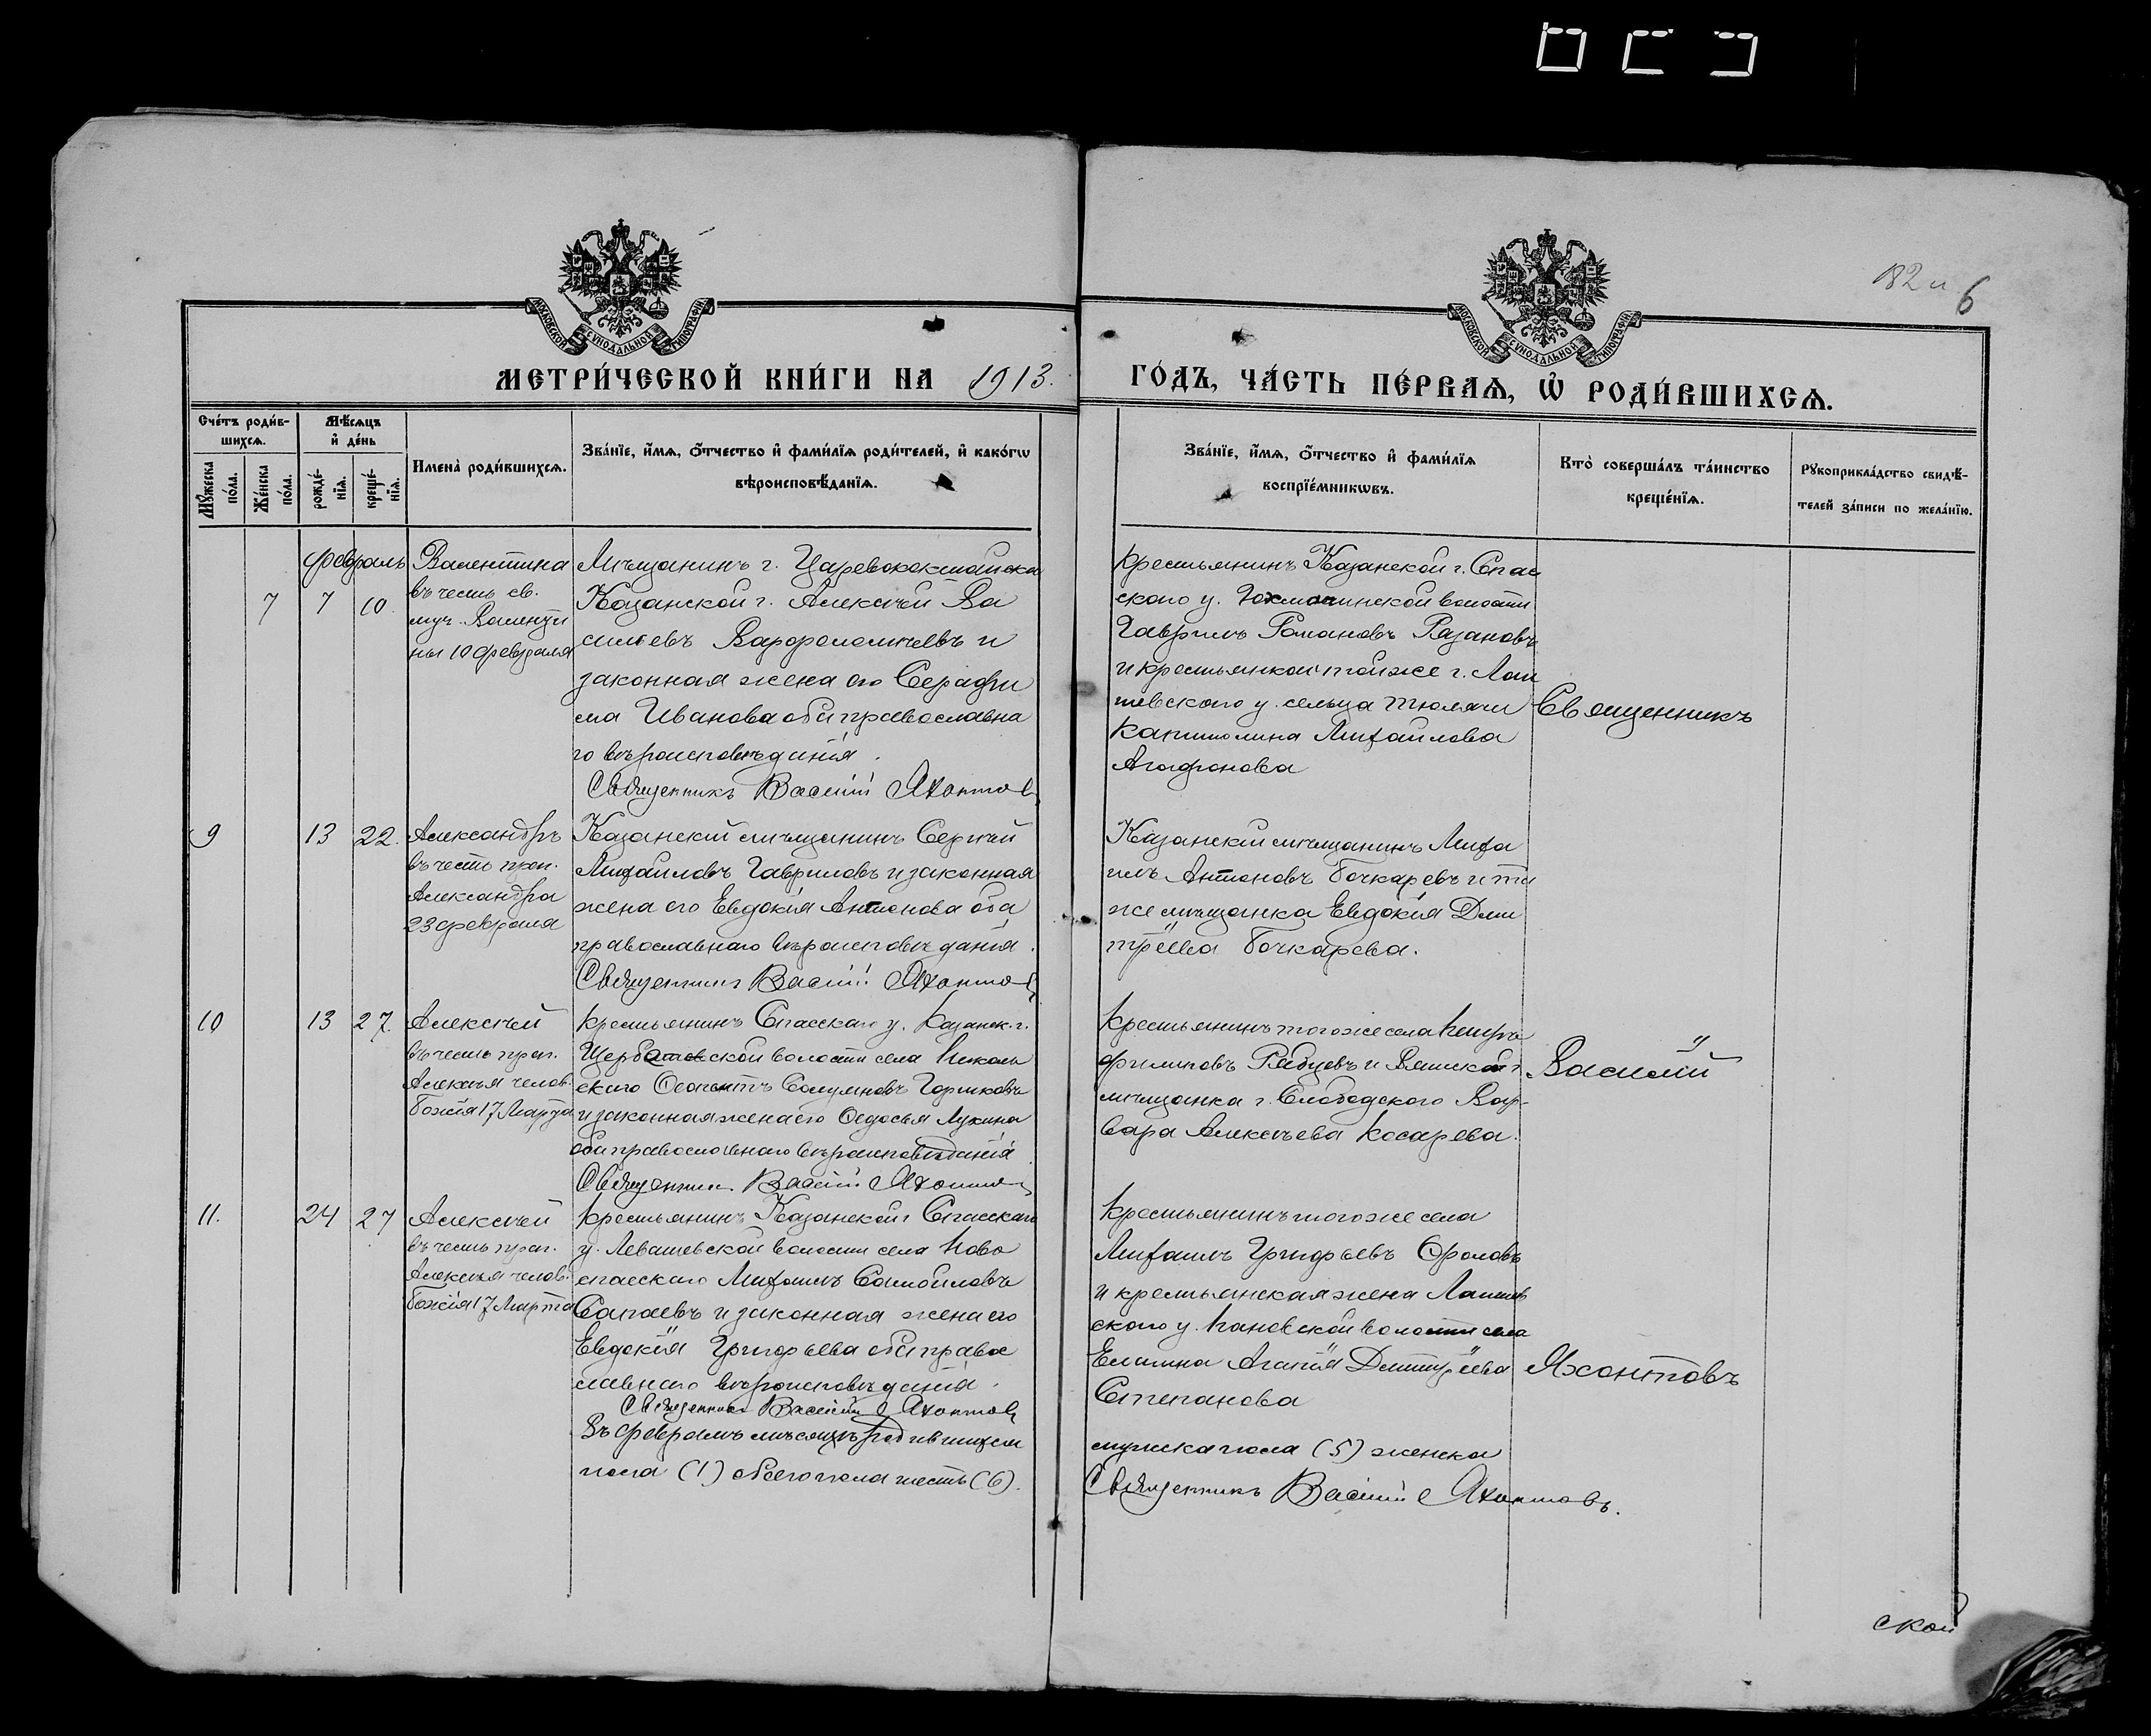 182 и 6
МОСКОВСКОЙ СѴНОДАЛЬНОЙ ТИПОГРАФІИ
МОСКОВСКОЙ СѴНОДАЛЬНОЙ ТИПОГРАФІИ
МЕТРИ́ЧЕСКОЙ КНИ́ГИ НА 1913. ГО́ДЪ, ЧА́СТЬ ПЕ́РВАѦ, Ѡ҆ РОДИ́ВШИХСѦ.
Сче́тъ роди́в-
шихсѧ.
Мꙋ́жеска по́ла.
Же́нска по́ла.
Мѣ́сѧцъ
и҆ де́нь
рожде́-нїѧ.
креще́-нїѧ.
Имена̀ роди́вшихсѧ.
Зва́нїе, и҆́мѧ, ѻ҆́тчество и҆ фами́лїѧ роди́телей, и҆ како́гѡ
вѣроисповѣ́данїѧ.
Зва́нїе, и҆́мѧ, ѻ҆́тчество и҆ фами́лїѧ
воспрїе́мникѡвъ.
Кто̀ соверша́лъ та́инство
креще́нїѧ.
Рꙋкоприкла́дство свидѣ́-
телей за́писи по жела́нїю.
Февраль
7 7 10
Валентина
въ честь св.
муч. Валенти
ны 10 февраля
Мѣщанинъ г. Царевококшайска
Казанской г. Алексѣй Ва
сильевъ Варфоломѣевъ и
законная жена его Серафи
ма Иванова оба православна
го вѣроисповѣданія.
Священникъ Василій Яхонтовъ
Крестьянинъ Казанской г. Спас
скаго у. волости
Гавріилъ Романовъ Разановъ
и крестьянка той же г. Лаи
шевскаго у. сельца Тюлячи
Капитолина Михайлова
Агафонова
Священникъ
9 13 22.
Александръ
въ честь преп.
Александра
23 февраля
Казанскій мѣщанинъ Сергѣй
Михайловъ Гавриловъ и законная
жена его Евдокія Антонова оба
православнаго вѣроисповѣданія.
Священникъ Василій Яхонтовъ
Казанскій мѣщанинъ Миха
илъ Антоновъ Бочкаревъ и та
же мѣщанка Евдокія Дми
тріева Бочкарева.
10 13 27.
Алексѣй
въ честь преп.
Алексѣя челов.
Божія 17 Марта
Крестьянинъ Спасскаго у. Казанск. г.
Щербетьской волости села Николь
скаго Горшковъ
и законная жена его Ѳедосья Лукина
оба православнаго вѣроисповѣданія
Священникъ Василій Яхонтовъ
Крестьянинъ того же села Петръ
Филиповъ Рябцевъ и Вятской г.
мѣщанка г. Слободского Вар-
вара Алексѣева Косарева.
Василій
11. 24 27
Алексѣй
въ честь преп.
Алексѣя челов.
Божія 17 Марта
Крестьянинъ Казанской г. Спасскаго
у. Левашевской волости села Ново
спасскаго Михаилъ Самойловъ
Сапаевъ и законная жена его
Евдокія Григорьева оба право
славнаго вѣроисповѣданія.
Священникъ Василій Яхонтовъ
Крестьянинъ того же села
Михаилъ Григорьевъ Фроловъ
и крестьянская жена Лаишев
скаго у. волости села
Агапія Дмитріева
Степанова
Яхонтовъ
Въ Февралѣ мѣсяцѣ родившихся мужска пола (5) женска
пола (1) обоего пола шесть (6).
Священникъ Василій Яхонтовъ.
ской